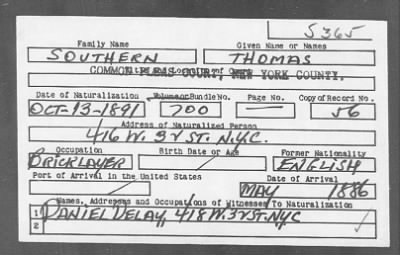 S365
Family Name Given Name or Names
SOUTHERN THOMAS
COMMON PLEAS COURT, NEW YORK COUNTY.
Date of Naturalization Volume or Bundle No. Page No. Copy of Record No.
OCT-13-1891 700 — 56
Address of Naturalized Person
416 W. 3D ST. N.Y.C.
Occupation Birth Date or Age Former Nationality
BRICKLAYER ENGLISH
Port of Arrival in the United States Date of Arrival
MAY 1886
Names, Addresses and Occupations of Witnesses To Naturalization
1 DANIEL DELAY, 418 W. 3D ST. NYC
2